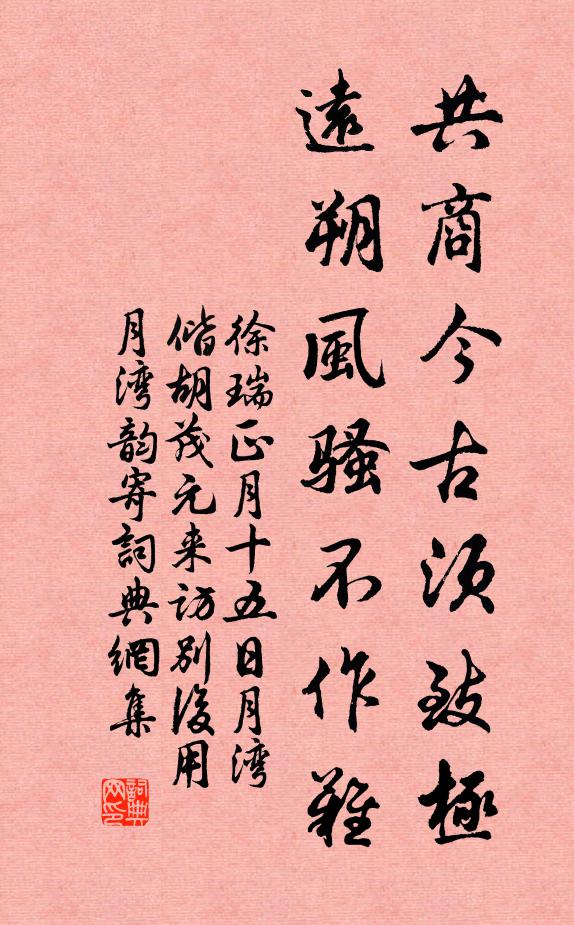 共商今古須致極
遠朔風騷不作難
徐瑞正月十五日月湾
偕胡茂元来訪別後用
月湾韵寄詞典網集
詞典网印